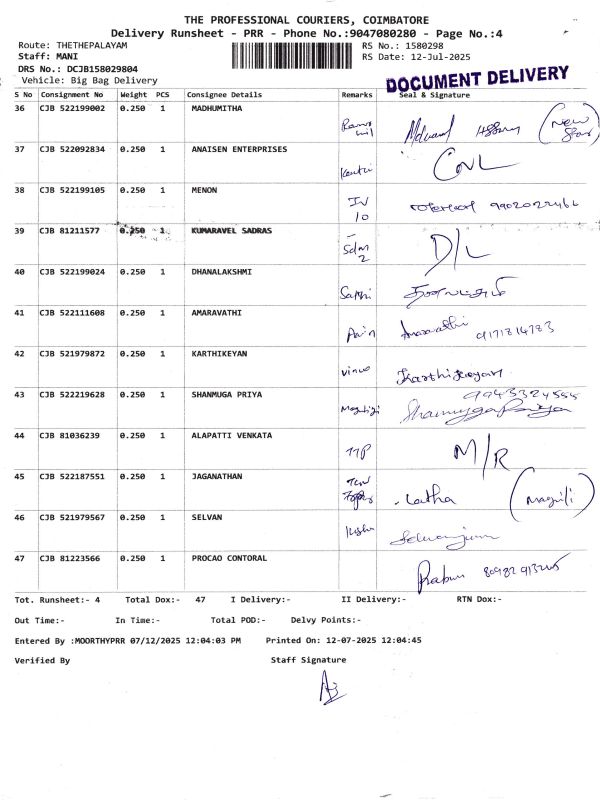 THE PROFESSIONAL COURIERS, COIMBATORE
Delivery Runsheet - PRR - Phone No.:9047080280 - Page No.:4
Route: THETHEPALAYAM RS No.: 1580298
Staff: MANI RS Date: 12-Jul-2025
DRS No.: DCJB158029804
Vehicle: Big Bag Delivery
DOCUMENT DELIVERY
S No Consignment No Weight PCS Consignee Details Remarks Seal & Signature
36 CJB 522199002 0.250 1 MADHUMITHA (New
37 CJB 522092834 0.250 1 ANAISEN ENTERPRISES
38 CJB 522199105 0.250 1 MENON
10
39 CJB 81211577 0.250 1 KUMARAVEL SADRAS D/L
2
40 CJB 522199024 0.250 1 DHANALAKSHMI
41 CJB 522111608 0.250 1 AMARAVATHI Amaravathi
42 CJB 521979872 0.250 1 KARTHIKEYAN Karthikeyan
43 CJB 522219628 0.250 1 SHANMUGA PRIYA
Shanmuga Priya
44 CJB 81036239 0.250 1 ALAPATTI VENKATA M/R
45 CJB 522187551 0.250 1 JAGANATHAN Latha
46 CJB 521979567 0.250 1 SELVAN
47 CJB 81223566 0.250 1 PROCAO CONTORAL
Tot. Runsheet:- 4 Total Dox:- 47 I Delivery:- II Delivery:- RTN Dox:-
Out Time:- In Time:- Total POD:- Delvy Points:-
Entered By :MOORTHYPRR 07/12/2025 12:04:03 PM Printed On: 12-07-2025 12:04:45
Verified By Staff Signature